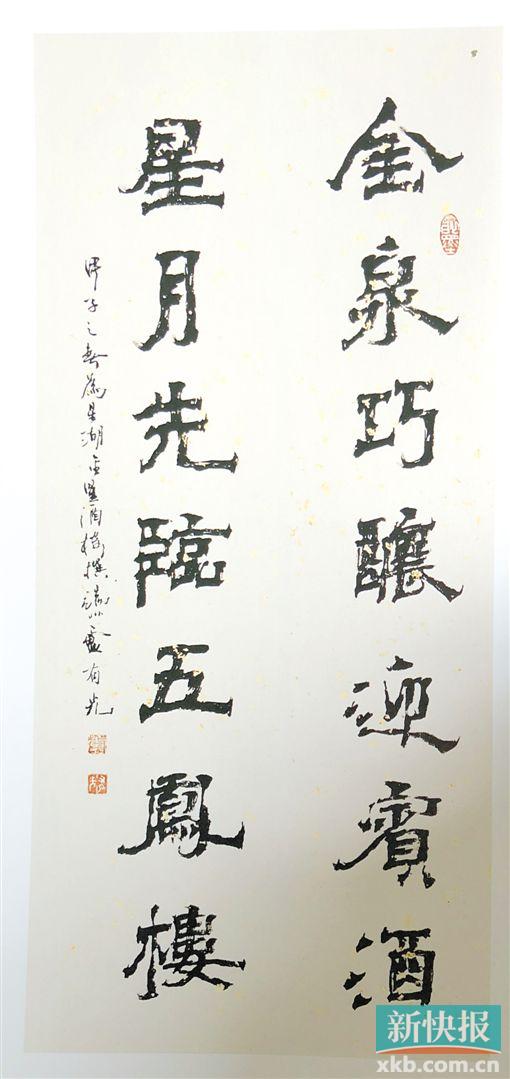 金泉巧釀迎賓酒
星月先臨五鳳樓
甲子之春為星湖金星酒樓撰 盧有光
新快报
xkb.com.cn